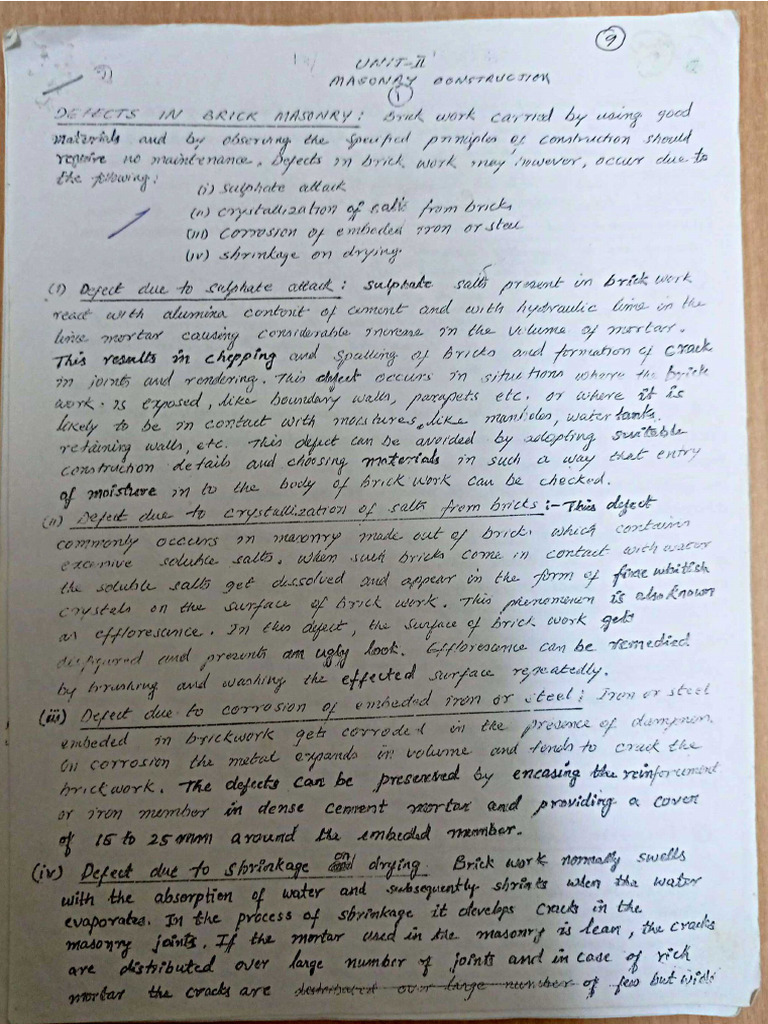 9
UNIT-II
MASONRY CONSTRUCTION
1
DEFECTS IN BRICK MASONRY: Brick work carried by using good
materials and by observing the specified principles of construction should
require no maintenance. Defects in brick work may however, occur due to
the following:
(i) sulphate attack
(ii) crystallization of salts from bricks
(iii) corrosion of embeded iron or steel
(iv) shrinkage on drying.
(i) Defect due to sulphate attack: sulphate salts present in brick work
react with alumina content of cement and with hydraulic lime in the
lime mortar causing considerable increase in the volume of mortar.
This results in chipping and spalling of bricks and formation of crack
in joints and rendering. This defect occurs in situations where the brick
work is exposed, like boundary walls, parapets etc. or where it is
likely to be in contact with moistures, like manholes, water tanks.
retaining walls, etc. This defect can be avoided by adopting suitable
construction details and choosing materials in such a way that entry
of moisture in to the body of brick work can be checked.
(ii) Defect due to crystallization of salts from bricks:- This defect
commonly occurs in masonry made out of bricks which contains
excessive soluble salts. When such bricks come in contact with water
the soluble salts get dissolved and appear in the form of fine whitish
crystals on the surface of brick work. This phenomenon is also known
as efflorescence. In this defect, the surface of brick work gets
disfigured and presents an ugly look. Efflorescence can be remedied
by brushing and washing the effected surface repeatedly.
(iii) Defect due to corrosion of embeded iron or steel: Iron or steel
embeded in brickwork gets corroded in the presence of
On corrosion the metal expands in volume and tends to crack the
brick work. The defects can be presented by encasing the reinforcement
or iron member in dense cement mortar and providing a cover
of 15 to 25 mm around the embeded member.
(iv) Defect due to shrinkage on drying. Brick work normally swells
with the absorption of water and subsequently shrinks when the water
evaporates. In the process of shrinkage it develops cracks in the
masonry joints. If the mortar used in the masonry is lean, the cracks
are distributed over large number of joints and in case of rich
mortar the cracks are distributed over large number of few but wide